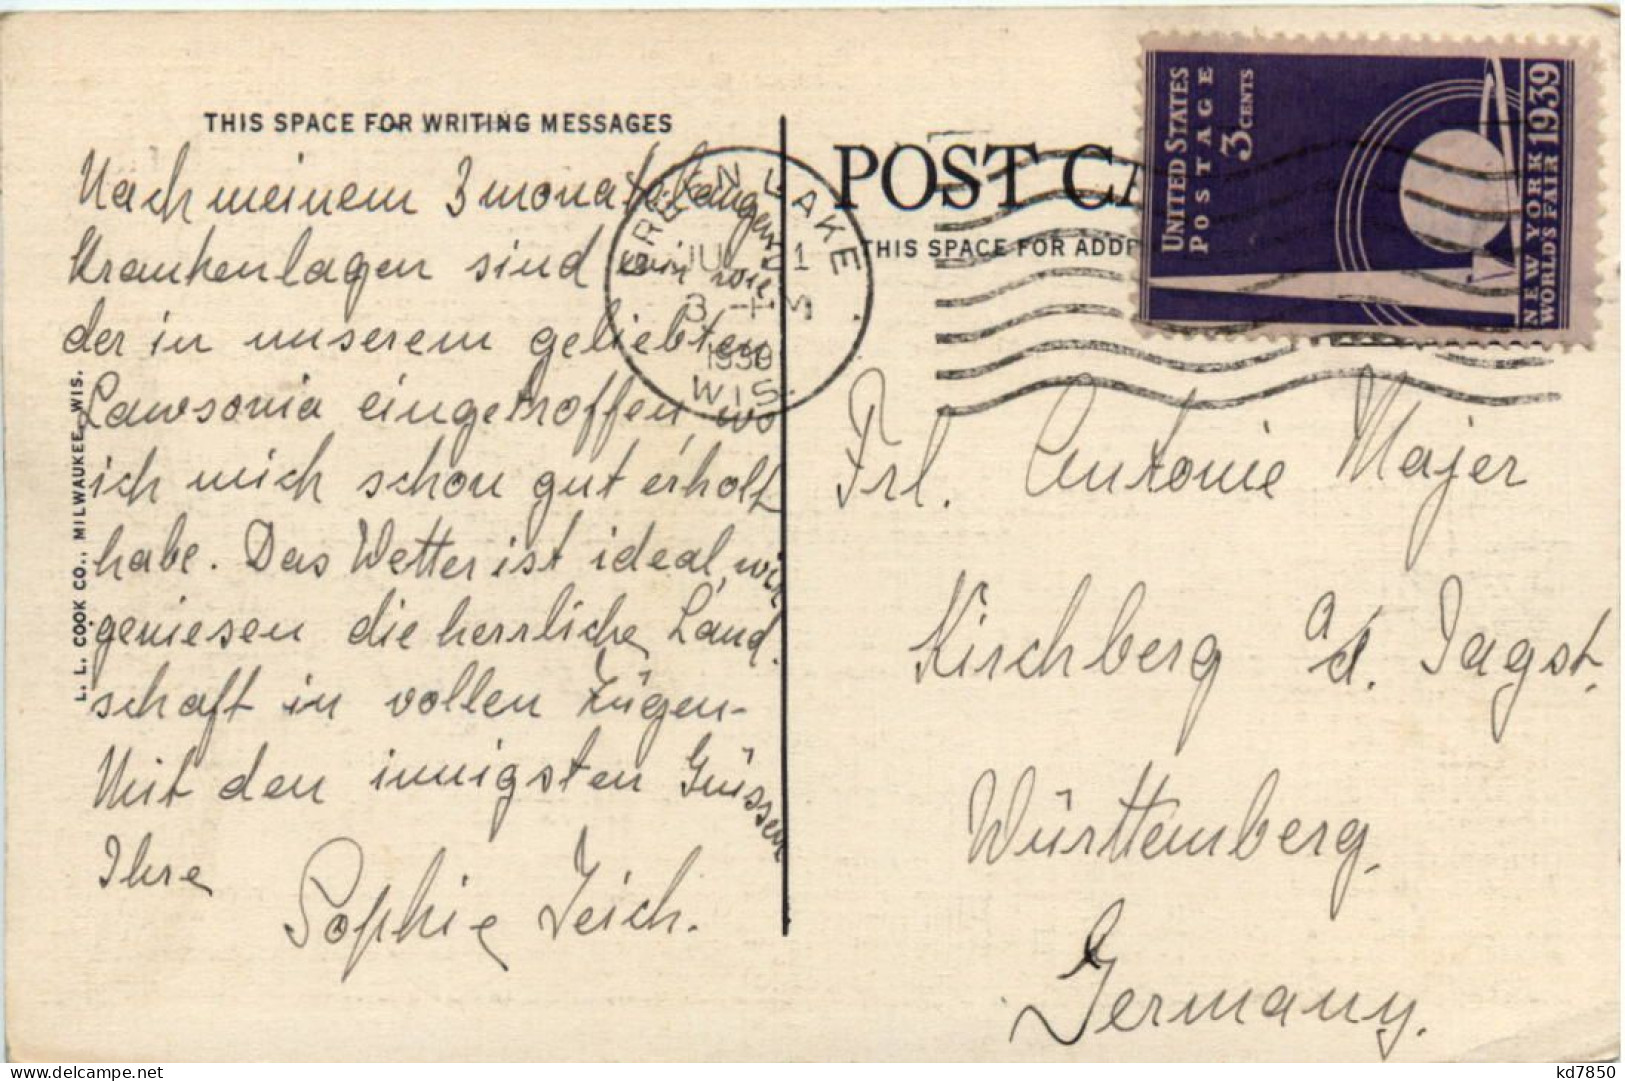 THIS SPACE FOR WRITING MESSAGES
Nach meinem 3 monatelangen
Krankenlagen sind wir wie
der in unserem geliebten
Lawsonia eingetroffen, wo
ich mich schon gut erholt
habe. Das Wetter ist ideal, wir
geniesen die herrliche Land.
schaft in vollen Zügen-
Mit den innigsten Grüssen
Ihre
Sophie Teich.
L. L. COOK CO., MILWAUKEE, WIS.
GREEN LAKE
1
1939
WIS.
POST CA
THIS SPACE FOR ADDRE
UNITED STATES
POSTAGE
3 CENTS
NEW YORK
WORLD'S FAIR 1939
Frl. Antonie Majer
Kirchberg a/d. Jagst.
Württemberg.
Germany.
kd7850